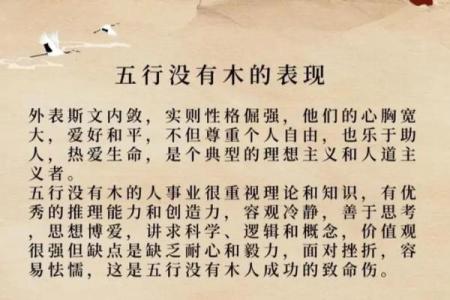 五行没有木的表现
外表斯文内敛，实则性格倔强，他们的心胸宽
大，爱好和平，不但尊重个人自由，也乐于助
人，热爱生命，是个典型的理想主义和人道主
义者。
五行没有木的人事业很重视理论和知识，有优
秀的推理能力和创造力，容观冷静，善于思考
，思想博爱，讲求科学、逻辑和概念，价值观
很强但缺点是缺乏耐心和毅力，面对挫折，容
易怯懦，这是五行没有木人成功的致命伤。